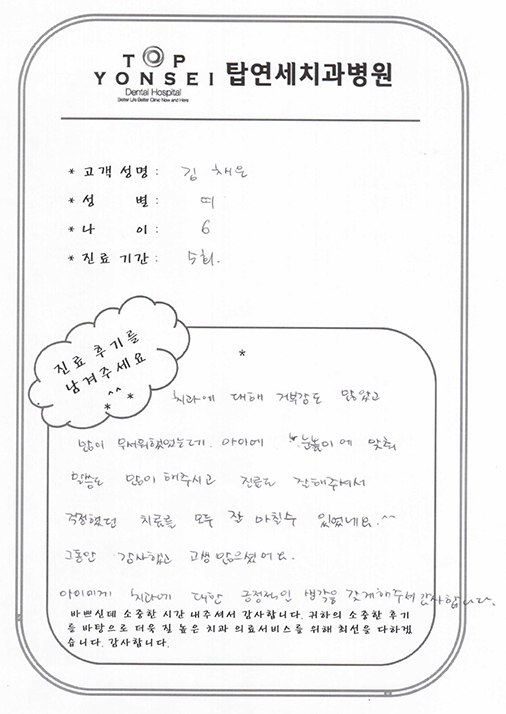 TOP
YONSEI 탑연세치과병원
Dental Hospital
Better Life Better Clinic Now and Here
* 고객 성명 : 김 채은
* 성 별 : 여
* 나 이 : 6
* 진료 기간 : 5회.
진료 후기를
남겨주세요
^^
* *
*
치과에 대해 거부감도 많았고
많이 무서워했었는데. 아이에 눈높이에 맞춰
말씀도 많이 해주시고 진료도 잘해주셔서
걱정했던 치료를 모두 잘 마칠수 있었네요.^^
그동안 감사했고 고생 많으셨어요.
아이에게 치과에 대한 긍정적인 생각을 갖게해주셔 감사합니다.
바쁘신데 소중한 시간 내주셔서 감사합니다. 귀하의 소중한 후기
를 바탕으로 더욱 질 높은 치과 의료서비스를 위해 최선을 다하겠
습니다. 감사합니다.